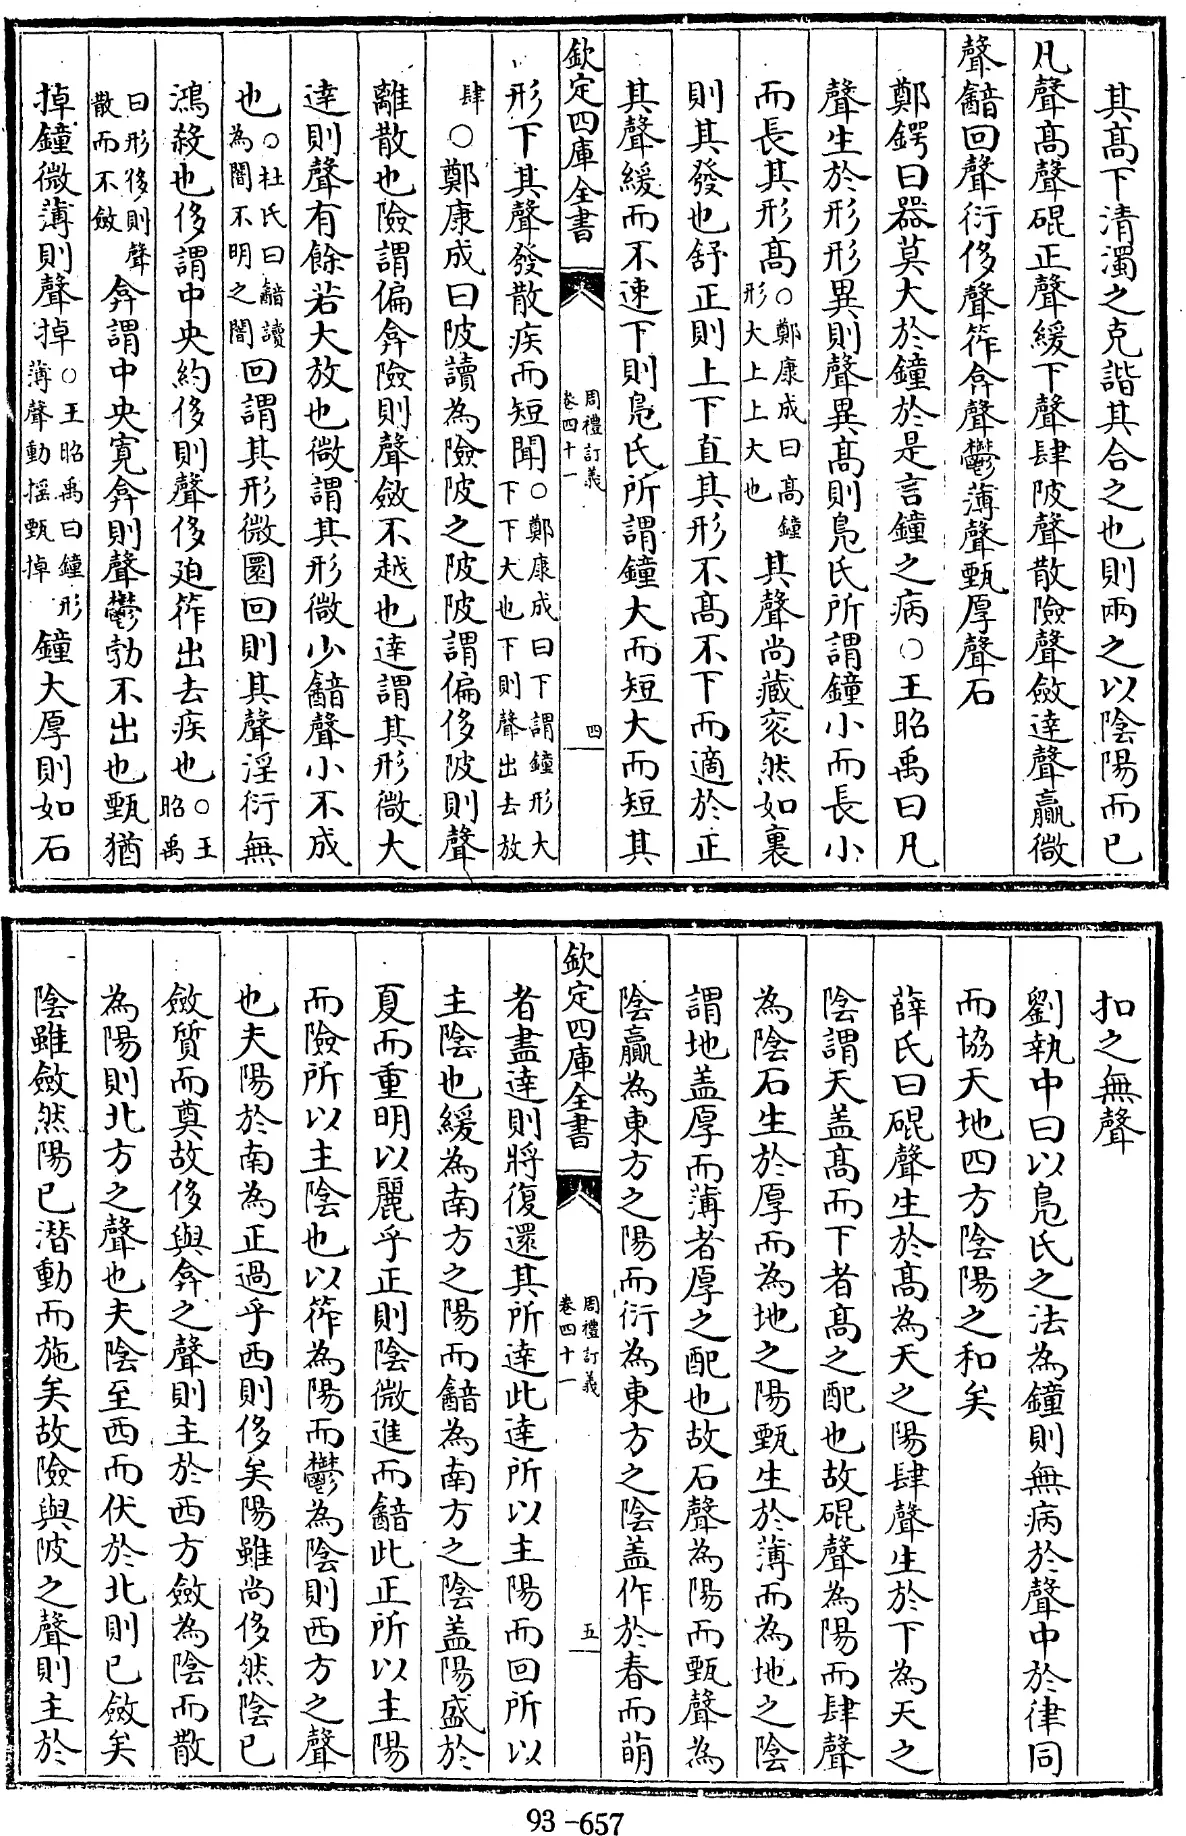 其髙下清濁之克諧其合之也則兩之以陰陽而已
凡聲髙聲䃂正聲緩下聲肆陂聲散險聲斂達聲贏微
聲韽回聲衍侈聲筰弇聲鬱薄聲甄厚聲石
鄭鍔曰器莫大於鐘於是言鐘之病○王昭禹曰凡
聲生於形形異則聲異髙則鳧氏所謂鐘小而長小
而長其形髙○鄭康成曰髙鐘形大上上大也其聲尚藏衮然如裏
則其發也舒正則上下直其形不髙不下而適於正
其聲緩而不速下則鳧氏所謂鐘大而短大而短其
欽定四庫全書
周禮訂義
卷四十一
四
形下其聲發散疾而短聞○鄭康成曰下謂鐘形大下下大也下則聲出去放
肆○鄭康成曰陂讀為險陂之陂陂謂偏侈陂則聲
離散也險謂偏弇險則聲斂不越也達謂其形微大
達則聲有餘若大放也微謂其形微少韽聲小不成
也○杜氏曰韽讀為闇不明之闇回謂其形微圜回則其聲淫衍無
鴻殺也侈謂中央約侈則聲侈廹筰出去疾也○王昭禹
曰形侈則聲散而不斂弇謂中央寛弇則聲鬱勃不出也甄猶
掉鐘微薄則聲掉○王昭禹曰鐘形薄聲動揺甄掉鐘大厚則如石
扣之無聲
劉執中曰以鳧氏之法為鐘則無病於聲中於律同
而協天地四方陰陽之和矣
薛氏曰䃂聲生於髙為天之陽肆聲生於下為天之
陰謂天盖髙而下者髙之配也故䃂聲為陽而肆聲
為陰石生於厚而為地之陽甄生於薄而為地之陰
謂地盖厚而薄者厚之配也故石聲為陽而甄聲為
陰贏為東方之陽而衍為東方之陰盖作於春而萌
欽定四庫全書
周禮訂義
卷四十一
五
者盡達則將復還其所達此達所以主陽而回所以
主陰也緩為南方之陽而韽為南方之陰盖陽盛於
夏而重明以麗乎正則陰微進而韽此正所以主陽
而險所以主陰也以筰為陽而鬱為陰則西方之聲
也夫陽於南為正過乎西則侈矣陽雖尚侈然陰已
斂質而奠故侈與弇之聲則主於西方斂為陰而散
為陽則北方之聲也夫陰至西而伏於北則已斂矣
陰雖斂然陽已潛動而施矣故險與陂之聲則主於
93-657